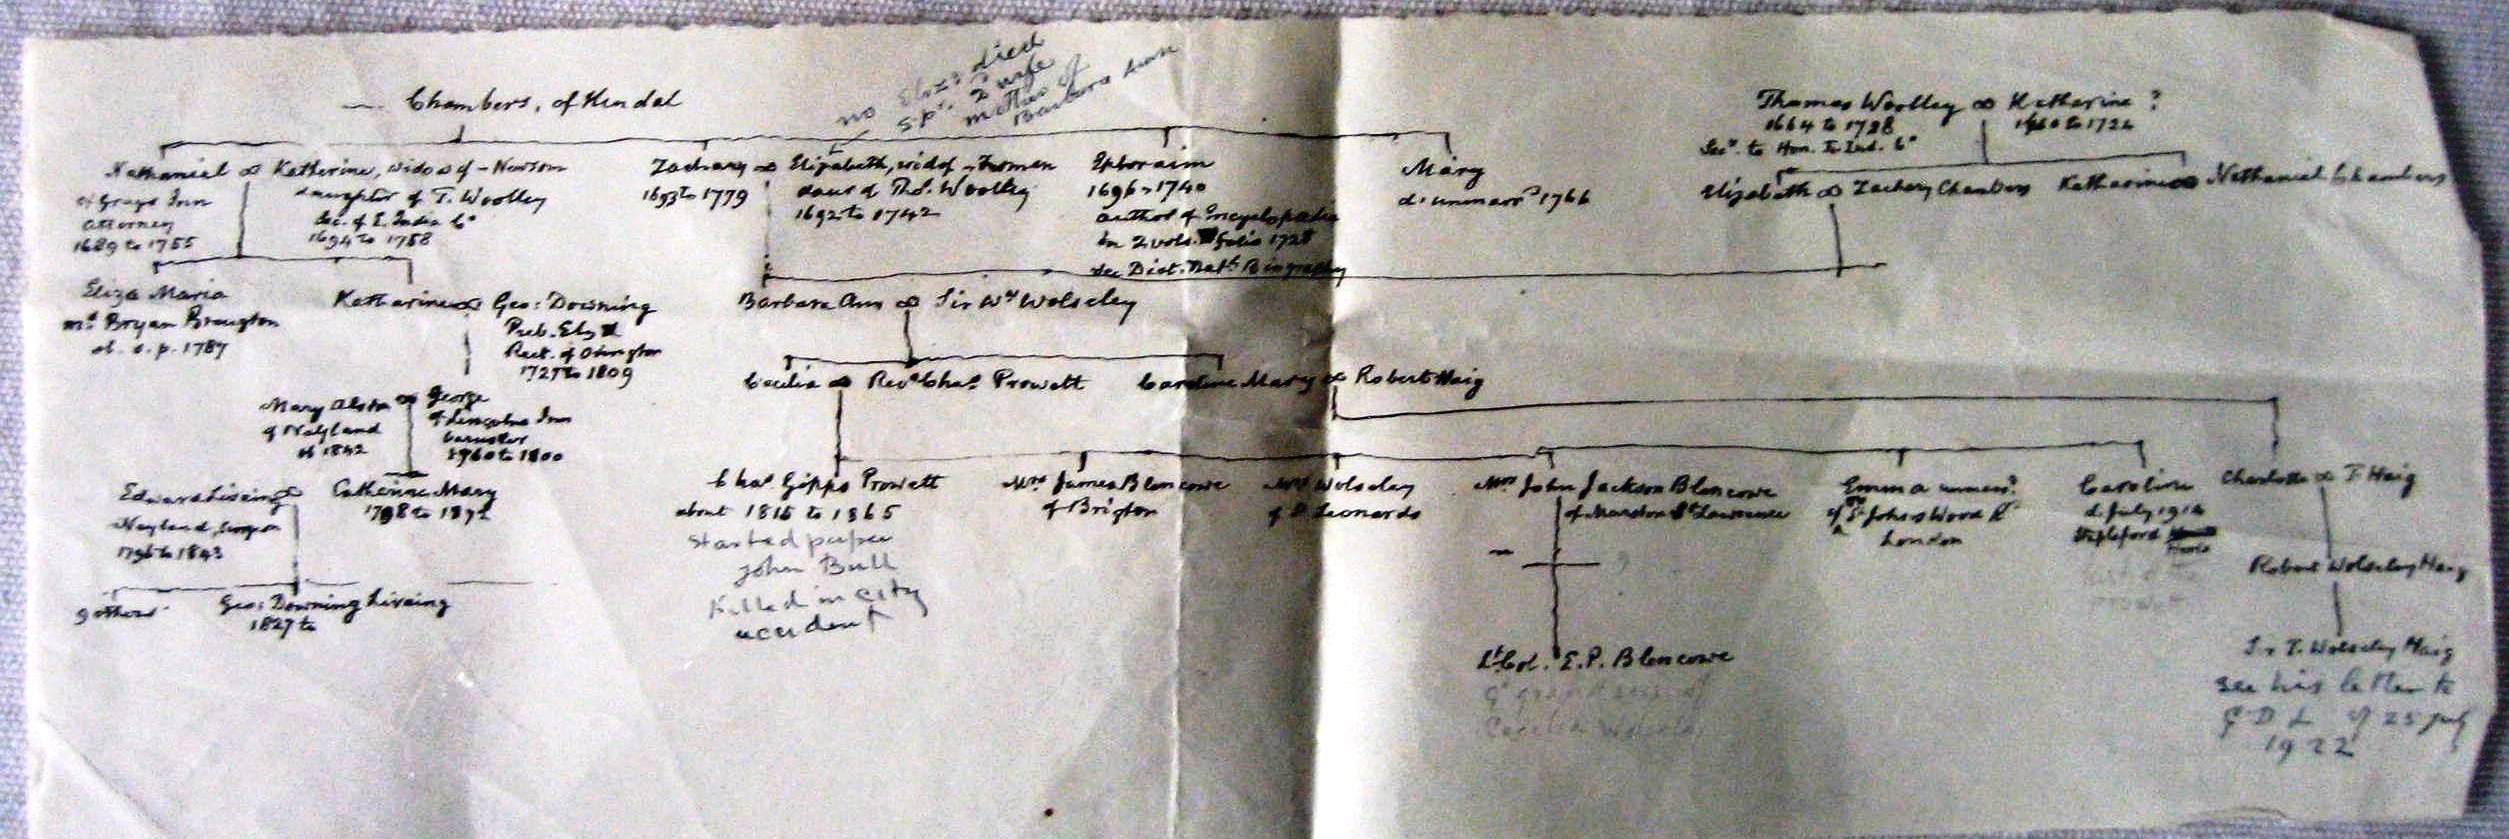 no Eliz: died
s.p. 2 wife
mother of
Barbara Ann
— Chambers, of Kendal
Thomas Woolley ∞ Katharine ?
1664 to 1728
1660 to 1726
Secʸ. to Hon. E. Ind. Cº
Nathaniel ∞ Katherine, widow of – Newsom
of Grays Inn
Attorney
1689 to 1755
daughter of T. Woolley
Sec. of E. India Cº
1694 to 1758
Zachary ∞ Elizabeth, wid of – Furman
1693 to 1779
daur of Thoˢ. Woolley
1692 to 1742
Ephraim
1696 > 1740
author of Encyclopædia
in 2 vols. folio 1728
see Dict. Natˡ Biography
Mary
d. unmarrᵈ 1766
Elizabeth ∞ Zachary Chambers
Katharine ∞ Nathaniel Chambers
Eliza Maria
mᵈ Bryan Brougton
ob. s.p. 1787
Katharine ∞ Geo: Downing
Preb. Ely
Rect. of Ovington
1727 to 1809
Barbara Ann ∞ Sir Wᵐ Wolseley
Mary Alston ∞ George
of Nayland
ob 1842
of Lincolns Inn
barrister
1760 to 1800
Cecilia ∞ Revᵈ Chaˢ Prowett
Caroline Mary ∞ Robert Haig
Edward Liveing ∞ Catherine Mary
Nayland, surgeon
1796 to 1843
1798 to 1872
Chaˢ Gipps Prowett
about 1815 to 1865
started paper
John Bull
Killed in city
accident
Mʳˢ James Blencowe
of Brigton
Mʳˢ Wolseley
of Sᵗ Leonards
Mʳˢ John Jackson Blencowe
of Marston Sᵗ Lawrence
Emma unmarrᵈ
of Sᵗ Johns Wood Rᵈ
London
Caroline
d. July 1914
Stapleford
Herts
last of the
Prowetts
Charlotte ∞ T Haig
Robert Wolseley Haig
9 others
Geo: Downing Liveing
1827 to
Lᵗ Col. E.P. Blencowe
Gᵗ grandson of
Cecilia Wolseley
Sir T. Wolseley Haig
see his letter to
G D L of 25 July
1922